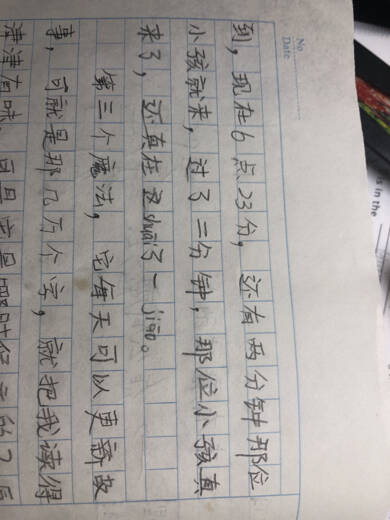 No.
Date
到，现在6点23分，还有两分钟那位
小孩就来，过了二分钟，那位小孩真
来了，还真在这shuāi了一jiāo。
第三个魔法，它每天可以更新故
事，可就是那几万个字，就把我读得
津津有味，而且它是
is in the